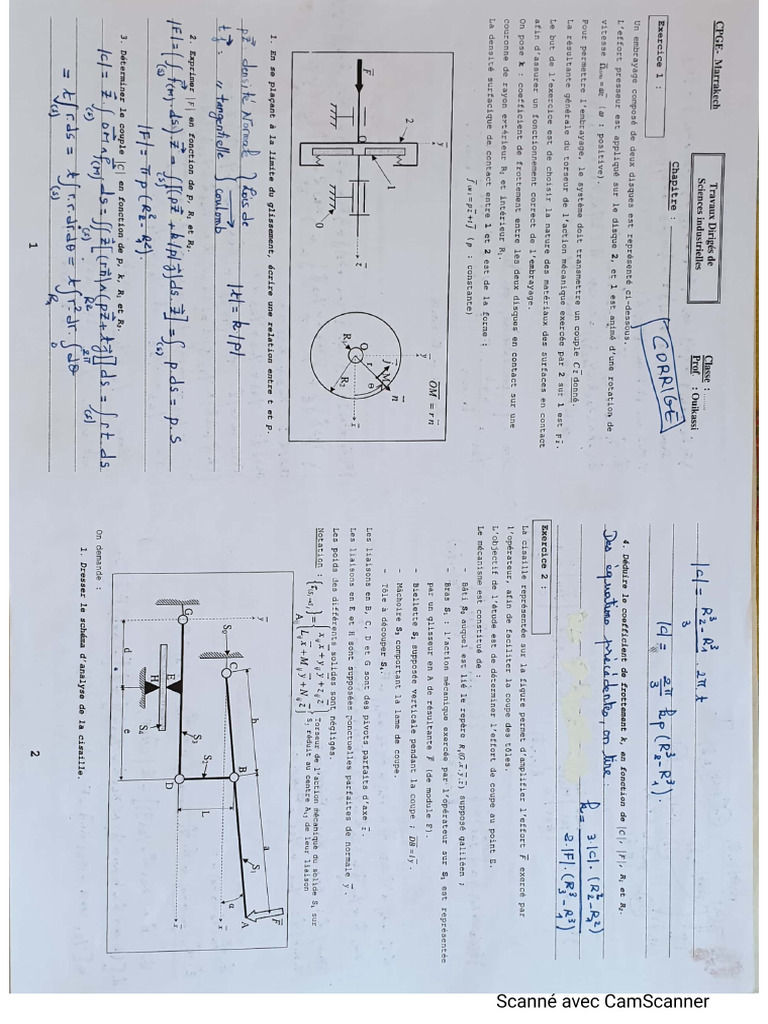 CPGE- Marrakech
Travaux Dirigés de
Sciences industrielles
Classe : ........
Prof. : Ouikassi
Chapitre :
CORRIGE
Exercice 1 :
Un embrayage composé de deux disques est représenté ci-dessous.
L'effort presseur est appliqué sur le disque 2, et 1 est animé d'une rotation de
Pour permettre l'embrayage, le système doit transmettre un couple C z donné.
La résultante générale du torseur de l'action mécanique exercée par 2 sur 1 est F z.
Le but de l'exercice est de choisir la nature des matériaux des surfaces en contact
afin d'assurer un fonctionnement correct de l'embrayage.
On pose k : coefficient de frottement entre les deux disques en contact sur une
couronne de rayon extérieur R₂ et intérieur R₁.
La densité surfacique de contact entre 1 et 2 est de la forme :
f(M) = p z + t j (p : constante)
2
y
F
O
z
1
0
y
OM = r n
n
j
M
O
r
θ
R₁
R₂
x
1. En se plaçant à la limite du glissement, écrire une relation entre t et p.
p z : densité Normale } Lois de
t j : " tangentielle } coulomb → |t| = k |p|
2. Exprimer |F| en fonction de p, R₁ et R₂.
|F| = (∫ f(M) ds). z = ∫[(p z + k|p| j) ds. z] = ∫ p ds = p. S
|F| = π p (R₂² - R₁²)
3. Déterminer le couple |C| en fonction de p, k, R₁ et R₂.
|C| = z. ∫ OM ∧ f(M) ds = ∫[z. (r n) ∧ (p z + t j)] ds = ∫ r t. ds
= t ∫ r. ds = t ∫ r. r. dr dθ = t ∫ r² dr. ∫ dθ
1
|C| = (R₂³ - R₁³)/3 . 2π. t
|C| = 2π/3 k p (R₂³ - R₁³).
4. Déduire le coefficient de frottement k, en fonction de |C|, |F|, R₁ et R₂.
Des equations précédentes, on tire
k = 3. |C|. (R₂² - R₁²) / 2. |F|. (R₂³ - R₁³)
Exercice 2 :
La cisaille représentée sur la figure permet d'amplifier l'effort F exercé par
l'opérateur, afin de faciliter la coupe des tôles.
L'objectif de l'étude est de déterminer l'effort de coupe au point E.
Le mécanisme est constitué de :
- Bâti S₀ auquel est lié le repère R₀(O, x, y, z) supposé galiléen ;
- Bras S₁ : l'action mécanique exercée par l'opérateur sur S₁ est représentée
par un glisseur en A de résultante F (de module F).
- Biellette S₂ supposée verticale pendant la coupe ; DB = l y.
- Mâchoire S₃ comportant la lame de coupe.
- Tôle à découper S₄.
Les liaisons en B, C, D et G sont des pivots parfaits d'axe z.
Les liaisons en E et H sont supposées ponctuelles parfaites de normale y.
Les poids des différents solides sont négligés.
Notation : {τ(Si→j)} = { Xij x + Yij y + Zij z
Lij x + Mij y + Nij z } Torseur de l'action mécanique du solide Si sur
Sj réduit au centre Aij de leur liaison
y
G
S₀
C
b
B
a
S₁
A
F
α
x
S₂
L
D
S₃
S₄
E
H
d
e
x
On demande :
1. Dresser le schéma d'analyse de la cisaille.
2
Scanné avec CamScanner